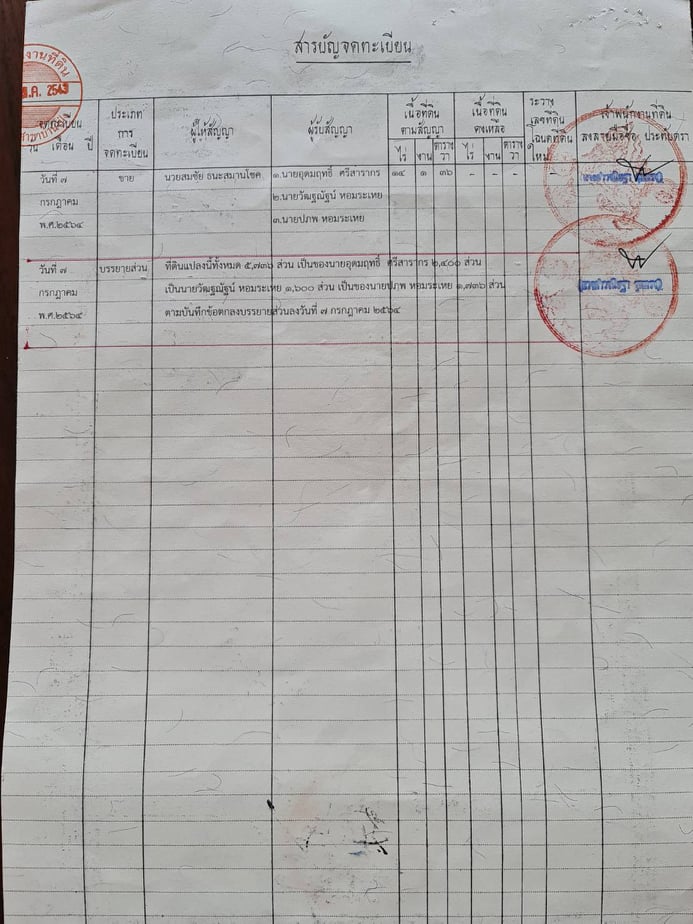 สารบัญจดทะเบียน
งานที่ดิน
.ค. 2543
จดทะเบียน
วัน เดือน ปี
ประเภท
การ
จดทะเบียน
ผู้ให้สัญญา
ผู้รับสัญญา
เนื้อที่ดิน
ตามสัญญา
ไร่ งาน ตาราง
วา
เนื้อที่ดิน
คงเหลือ
ไร่ งาน ตาราง
วา
ระวาง
เลขที่ดิน
โฉนดที่ดิน
ใหม่
เจ้าพนักงานที่ดิน
ลงลายมือชื่อ ประทับตรา
วันที่ ๗ ขาย นายสมชัย ธนะสมานโชค ๑.นายอุดมฤทธิ์ ศรีสารากร ๑๔ ๑ ๓๖ - - - -
กรกฎาคม ๒.นายวัฒฐณัฐน์ หอมระเหย
พ.ศ.๒๕๖๔ ๓.นายปภพ หอมระเหย
วันที่ ๗ บรรยายส่วน ที่ดินแปลงนี้ทั้งหมด ๕,๗๓๖ ส่วน เป็นของนายอุดมฤทธิ์ ศรีสารากร ๒,๔๐๐ ส่วน
กรกฎาคม เป็นนายวัฒฐณัฐน์ หอมระเหย ๑,๖๐๐ ส่วน เป็นของนายปภพ หอมระเหย ๑,๗๓๖ ส่วน
พ.ศ.๒๕๖๔ ตามบันทึกข้อตกลงบรรยายส่วนลงวันที่ ๗ กรกฎาคม ๒๕๖๔